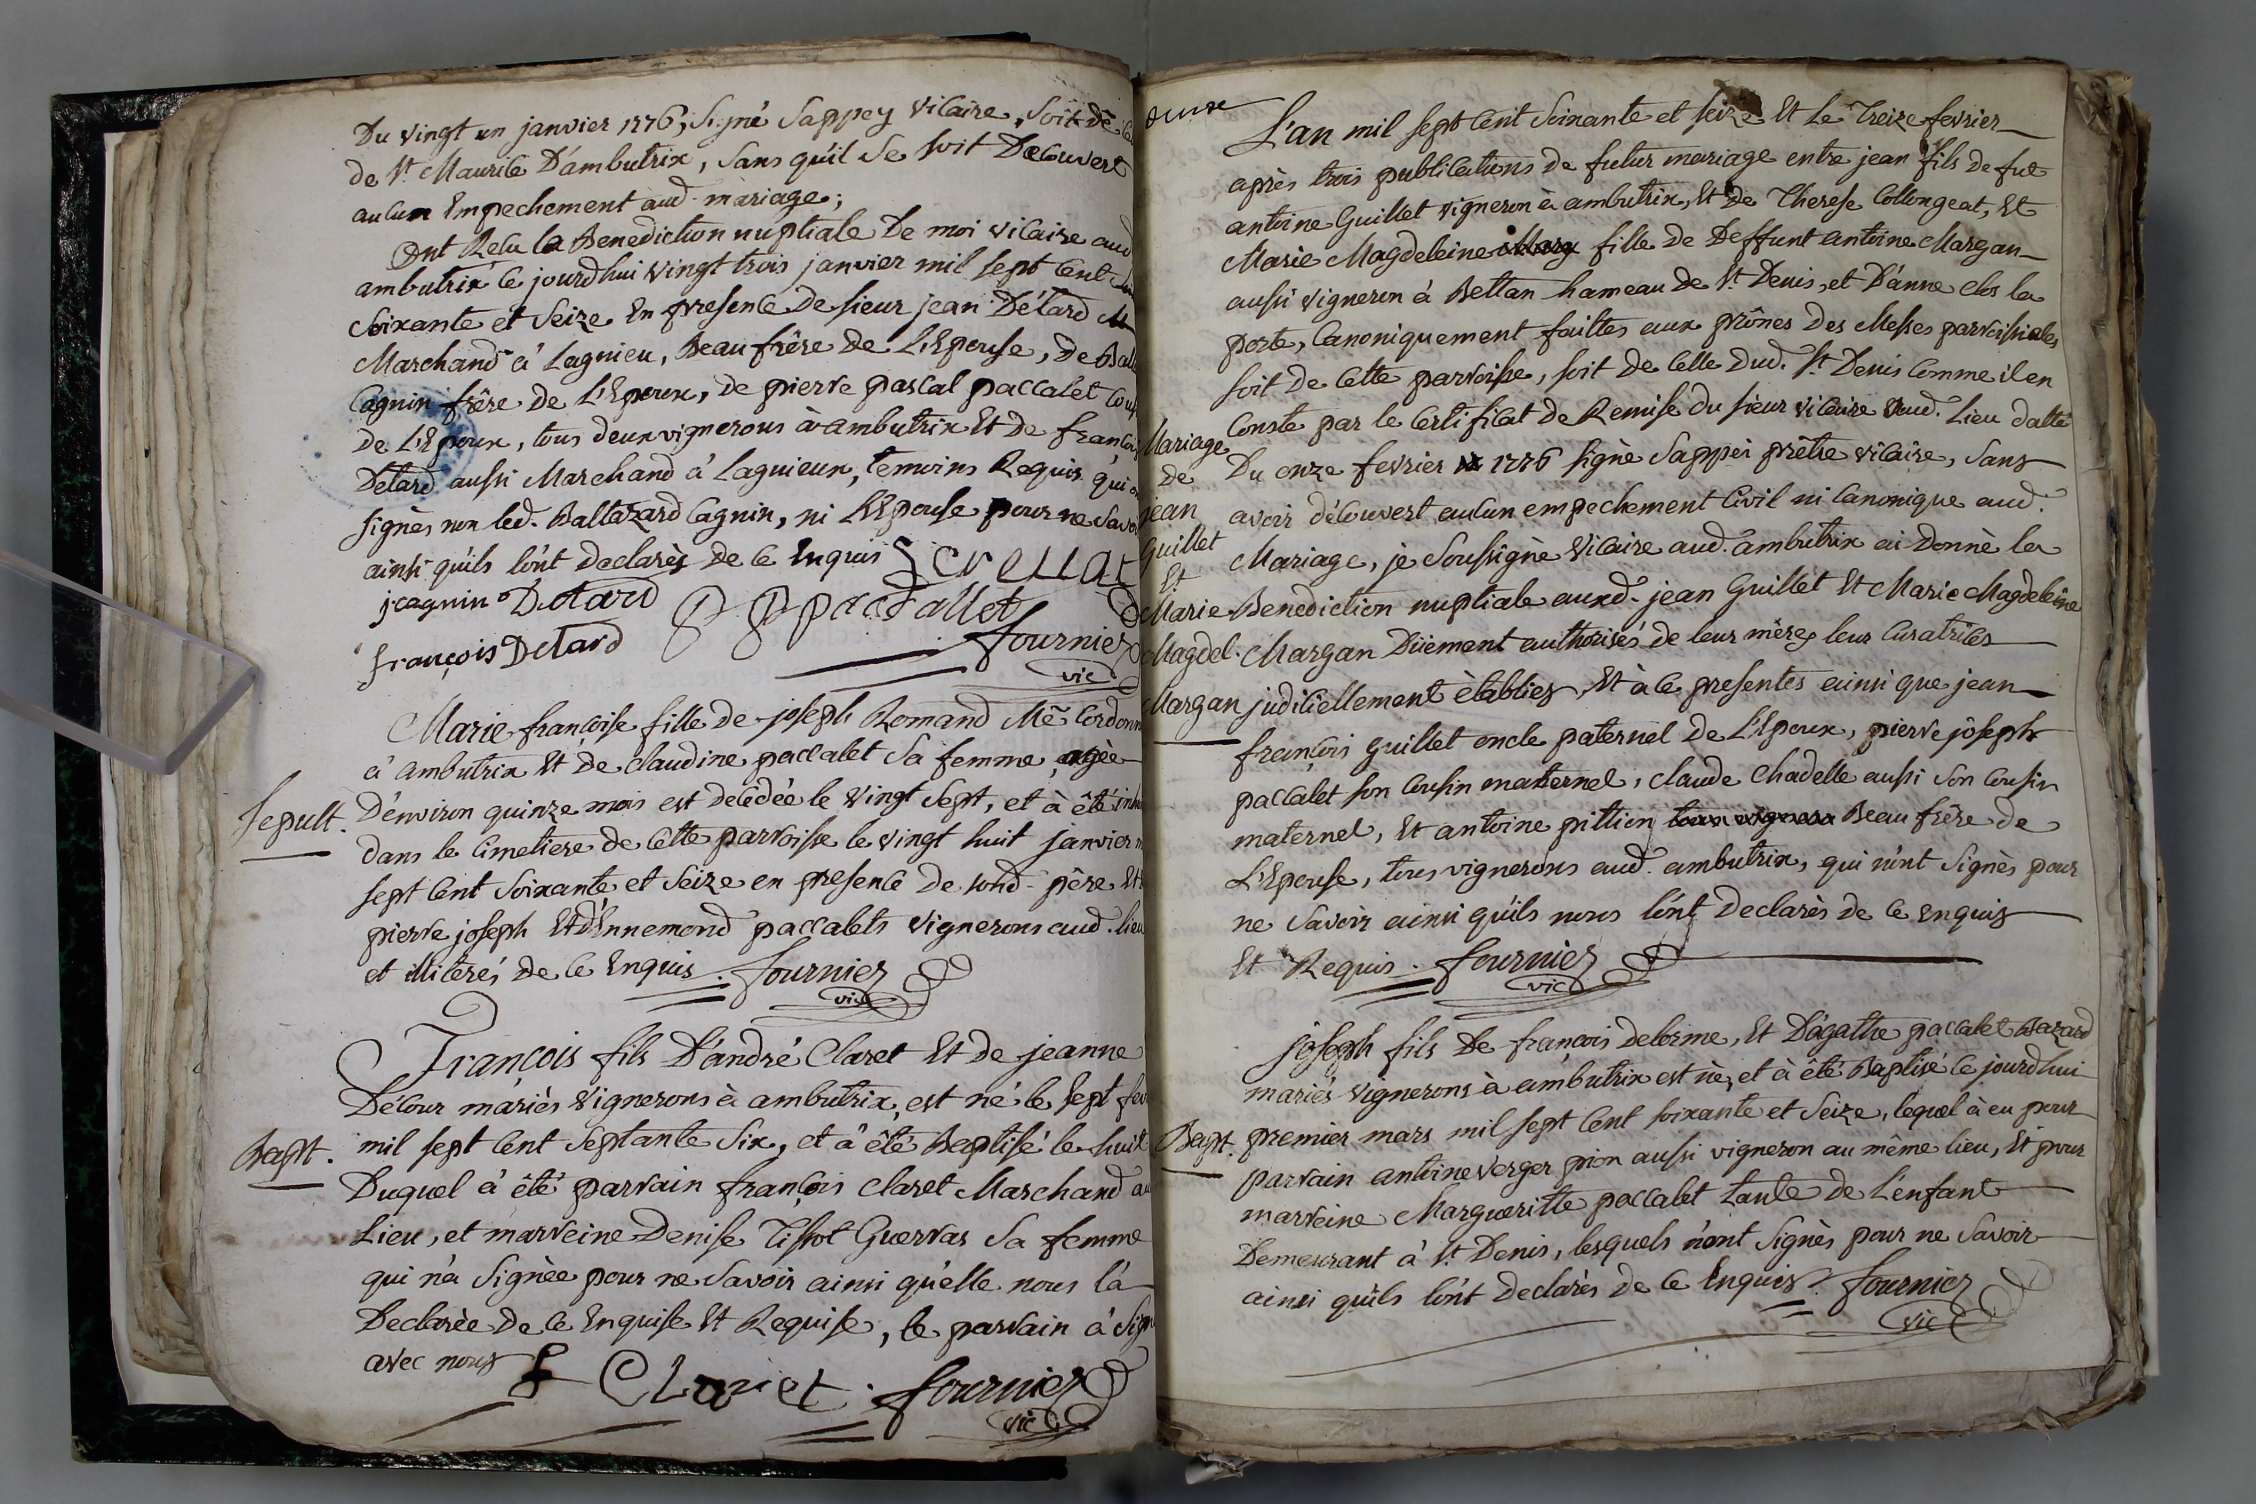 Du vingt un janvier 1776, signé Sappey vicaire, soit de
de St. Maurice D'ambutrix, sans qu'il se soit Decouvert
aucun Empechement aud. mariage;
Ont Recu la Benediction nuptiale De moi vicaire aud
ambutrix ce jourdhui vingt trois janvier mil sept cent
soixante et seize En presence De sieur jean Détard
Marchand à Lagnieu, Beau frère de L'Epouse, de
Cagnin frêre de L'Epoux, de pierre pascal paccalet
De L'Epoux, tous deux vignerons à ambutrix Et de francois
Detard aussi Marchand à Lagnieux, temoins Requis qui
signès non led. Baltazard Cagnin, ni L'Epouse pour ne savoir
ainsi qu'ils lónt declarès de ce Enquis
jcagnin Detard P P paccallet
françois Detard fournier
vic
Marie francoise fille de joseph Romand Mê. Cordonn
à ambutrix Et de claudine paccalet sa femme agèe
Sepult. D'environ quinze mois est decedée le vingt sept, et à été
dans le cimetiere de cette parroisse le vingt huit janvier
sept cent soixante et seize en presence de sond. père Et
pierre joseph Et d'Ennemond paccalets vignerons aud. lieu
et illiterés de ce Enquis. fournier
vic
François fils D'andré Claret Et de jeanne
Décour mariès vignerons à ambutrix, est né le sept
Bapt. mil sept cent septante six, et à été Baptisé le huit
Duquel à été parrain françois claret Marchand
Lieu, et marreine Denise Tissot Guerras sa femme
qui n'a signèe pour ne savoir ainsi qu'elle nous l'à
Declarèe de ce Enquise Et Requise, le parrain à
avec nous F Clariet. fournier
vic
L'an mil sept cent soixante et seize Et Le Treize fevrier
après trois publications de futur mariage entre jean fils de fut
antoine Guillet vigneron à ambutrix, Et de Therese Collongeat, Et
Marie Magdeleine Marg fille de Deffunt antoine Margan
aussi vigneron à Bettan hameau de St. Denis, et D'anne clos la
porte, canoniquement faittes aux prônes Des Messes parroissiales
soit de cette parroisse, soit de celle dud. St. Denis comme il en
Conste par le certificat de Remise du sieur vicaire dud. Lieu datté
Mariage
de
jean
Guillet
Et
Marie
Magdel.
Margan
Du onze fevrier 1776 signè Sappei prêtre vicaire, sans
avoir découvert aucun empechement civil ni canonique aud.
Mariage, je soussignè vicaire aud. ambutrix ai donnè la
Benediction nuptiale auxd. jean Guillet Et Marie Magdeleine
Margan Düement authorisés de leur mères leur Curatrices
judiciellement ètablies Et à ce presentes ainsi que jean
françois Guillet oncle paternel de L'Epoux, pierre jôseph
paccalet son cousin maternel, claude Chadelle aussi son cousin
maternel, Et antoine pittion Beau frêre de
L'Epouse, tous vignerons aud. ambutrix, qui n'ont signès pour
ne savoir ainsi qu'ils nous lónt Declarès de ce enquis
Et Requis. fournier
vic
joseph fils De francois delorme, Et D'agathe paccalet Bazard
mariés vignerons à ambutrix est nè, et à été Baptisé ce jourdhui
Bapt. premier mars mil sept cent soixante et seize, lequel à eu pour
parrain antoine Verger pion aussi vigneron au même lieu, Et pour
marreine Margueritte paccalet tante de L'enfant
Demeurant à St. Denis, lesquels n'ont signès pour ne savoir
ainsi qu'ils lónt declarès de ce Enquis. fournier
vic